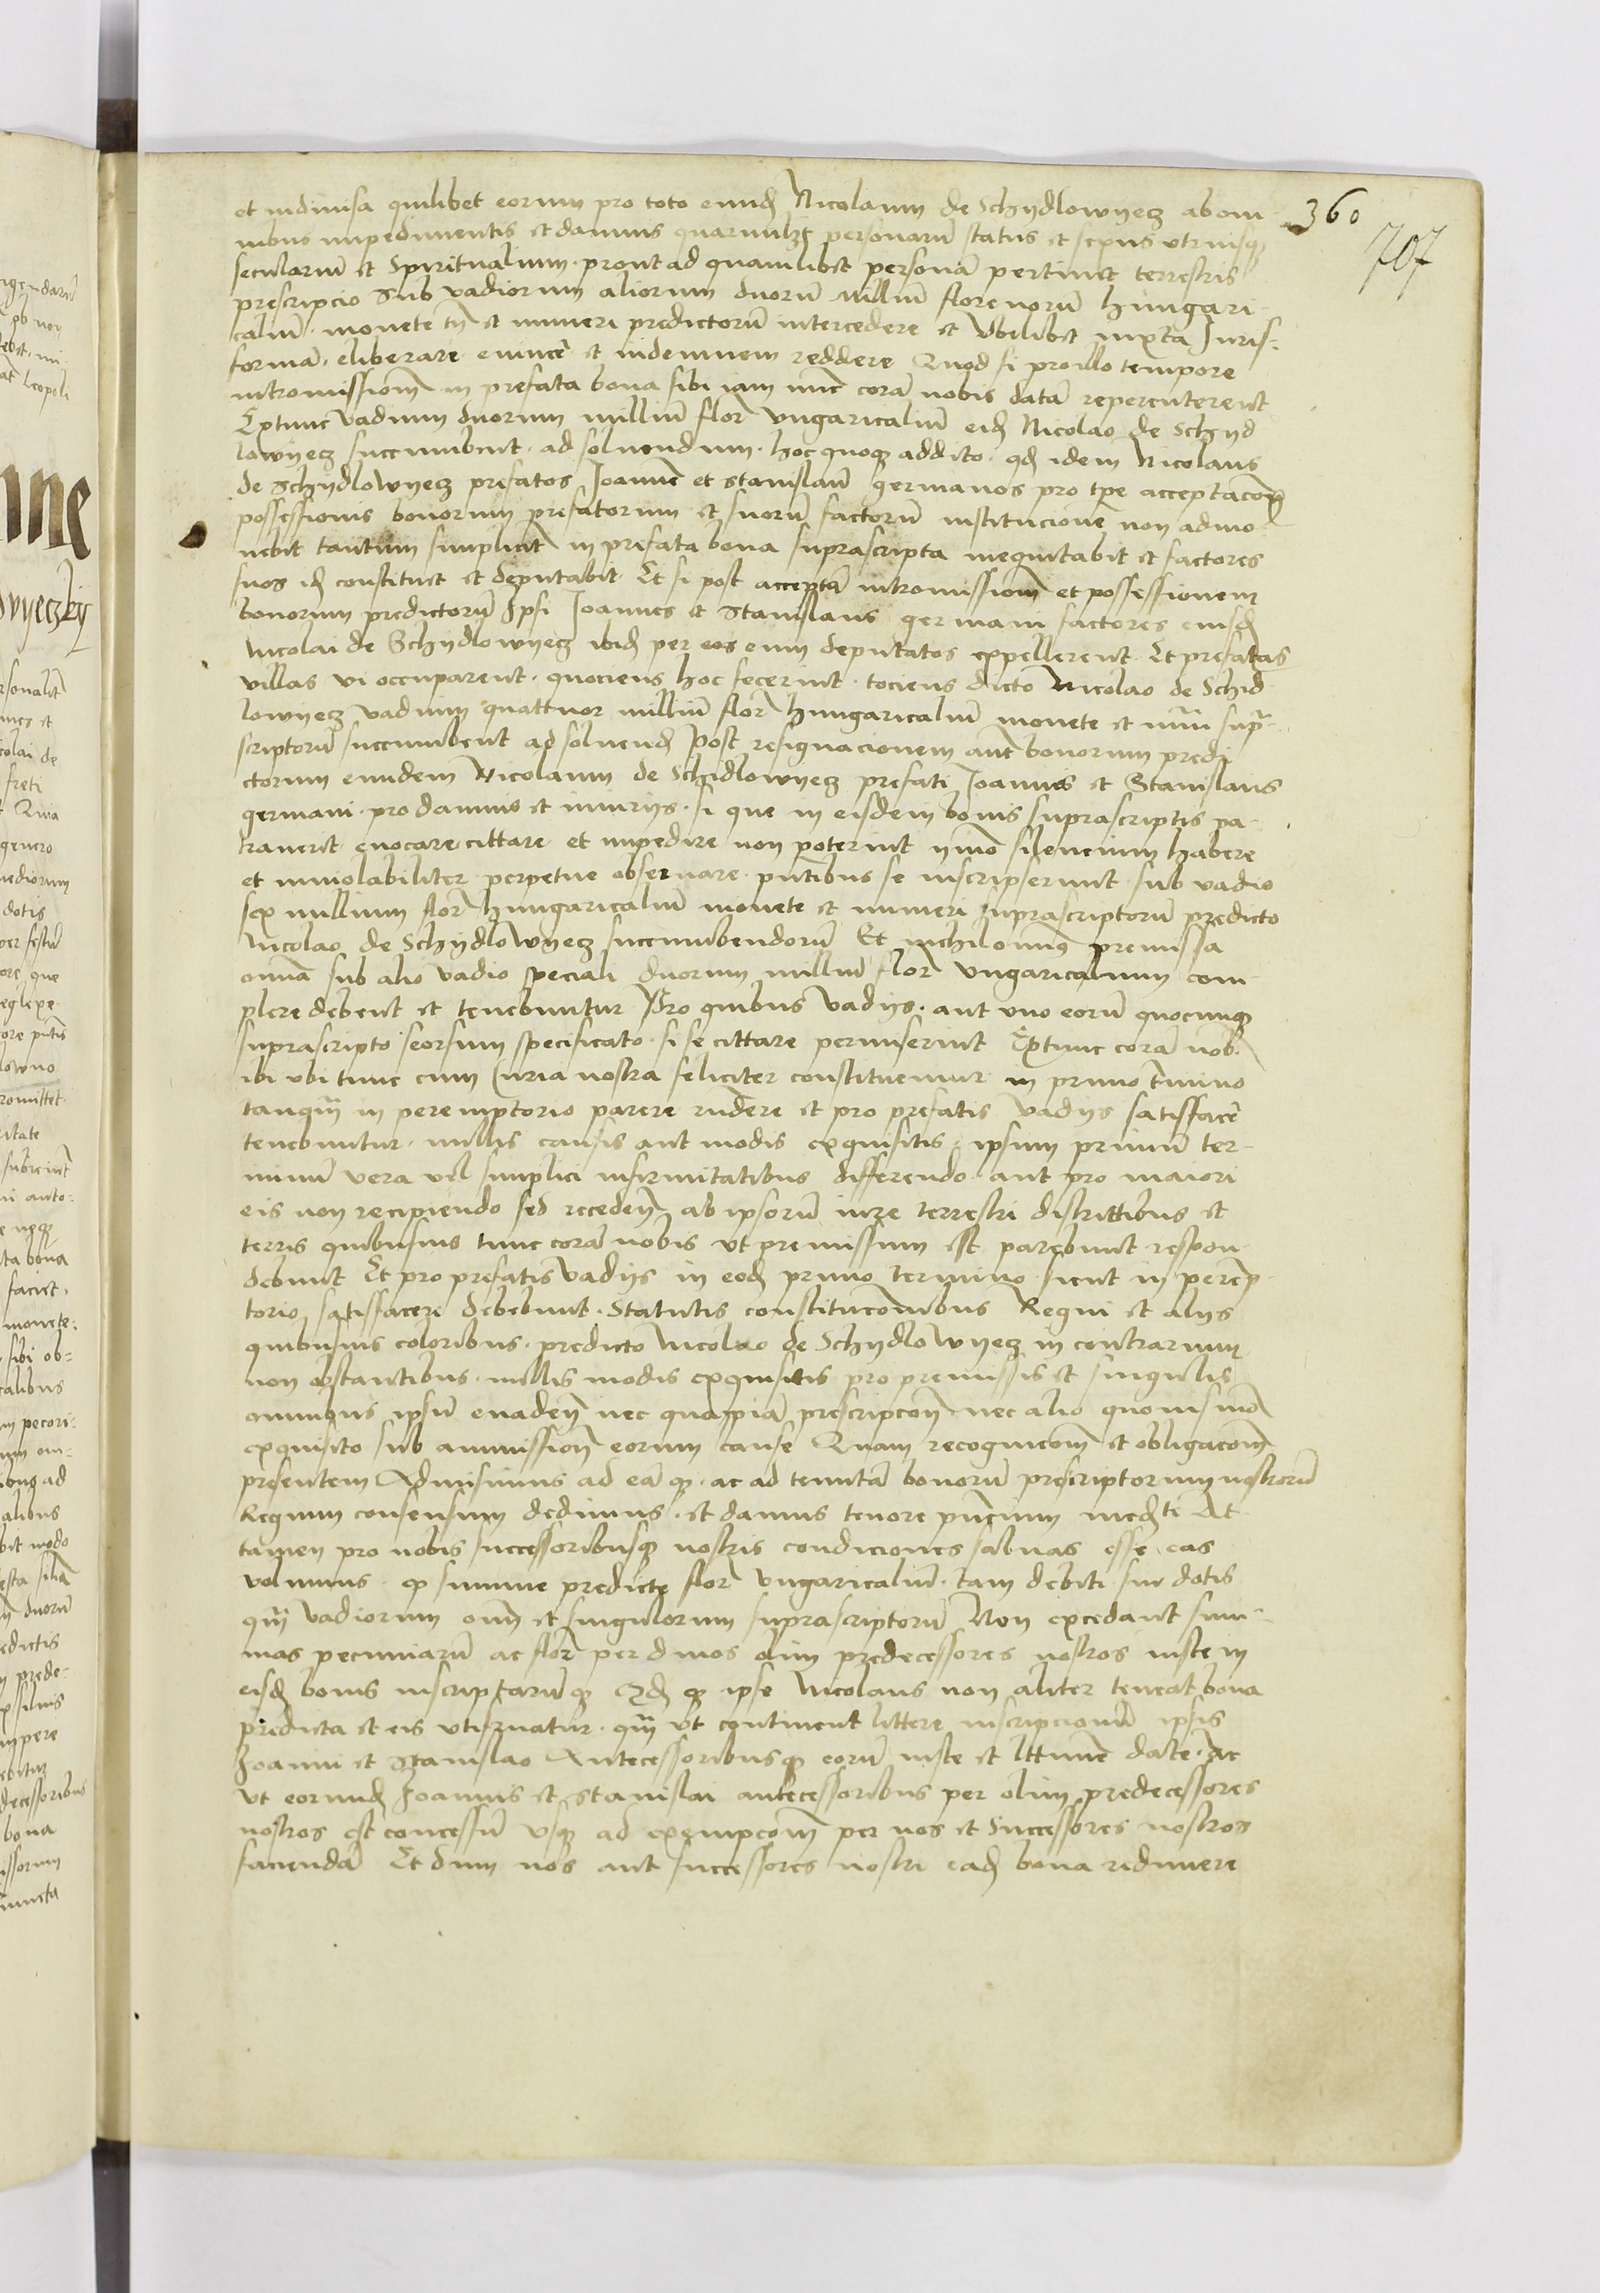 360
707
et indivisa quilibet eorum pro toto eund Nicolaum de Schydlowyecz ab om
nibus impedimentis et damnis personarū status et sexus utriusq
secularium et Spiritualium prout ad quamlibet personā pertinet terrestris
prescripcio Sub vadiorum aliorum duorū milliū florenorū hungari-
caliū monete et numeri predictorū intercedere et ubilibet iuxta Juris-
formā eliberare evincē et indemnem reddere Quod si pro illo tempore
intromissionē in prefata bona sibi iam nūc corā nobis datā repercuterent
Extunc vadium duorum milliū flor ungaricaliū eid Nicolao de Schyd
lowyecz succumbent ad solvendum hoc quoq addito qd idem Nicolaus
de Schydlowyecz prefatos Joannē et Stanislaū germanos pro tpe acceptacōis
possessionis bonorum prefatorum et suorū factorū institucionē non admo
nebit tantum simplicit in prefata bona suprascripta inequitabit et factores
suos id constituet et deputabit Et si post acceptā intromissionē et possessionem
bonorum predictorū Ipsi Joannes et Stanislaus germani factores eiusd
Nicolai de Schydlowyecz ibid per eos eum deputatos expellerent Et prefatas
villas vi occuparent quociens hoc fecerint tociens dicto Nicolao de Schid
lowyecz vadium quattuor milliū flor hungaricaliū monete et sup-
scriptorū succumbent ad solvend Post resignacionem aut bonorum predi
ctorum eundem Nicolaum de Schidlowyecz prefati Joannes et Stanislaus
germani pro damnis et iniuriis si que in eisdem bonis suprascriptis pa-
traverit evocare cittare et impedire non poterint ymmo silencium habere
et inviolabiliter perpetue observare pntibus se inscripserunt sub vadio
sex millium flor hungaricaliū monete et numeri suprascriptorū predicto
Nicolao de Schydlowyecz succumbendorū Et nichilomin9 premissa
omia sub alio vadio speciali duorum milliū flor ungaricalium com
plere debent et tenebuntur Pro quibus vadiis aut uno eorū quocunq
suprascripto seorsum specificato si se cittare permiserint Extunc corā nob
ibi ubi tunc cum Curia nostra feliciter constituemur in primo tmino
tanq in peremptorio parere rndere et pro prefatis vadiis satisfacē
tenebuntur nullis causis aut modis exquisitis ipsum primū ter-
minū vera vel simplici infirmitatibus differendo aut pro maiori
eis non recipiendo sed reced ab ipsorū iure terrestri districtibus et
terris quibusvis tunc corā nobis ut premissum est parebunt respon-
debunt Et pro prefatis vadiis in eod primo termino sicut in peremp-
torio satisfacere debebunt Statutis constitucōnibus Regni et aliis
quibusvis coloribus predicto Nicolao de Schydlowyecz in contrarium
non obstantibus nullis modis exquisitis pro premissis et singulis
ipsū evad nec quampiā prescripcōn nec alio quovis mō
exquisito sub amissionē eorum cause Quam recognicōem et obligacōem
presentem Admisimus ad eā q ac ad tenutā bonorū prescriptorum nostrorū
Regium consensum dedimus et damus tenore pncium medti At
tamen pro nobis successoribusq nostris condiciones salvas esse eas
volumus q summe predicte flor ungaricaliū tam debiti sui dotis
q vadiorum om et singulorum suprascriptorū Non excedant sum-
mas pecuniarū ac flor per divos olim predecessores nostros iuste in
eisd bonis inscriptarū q Qd q ipse Nicolaus non aliter teneat bona
predicta et eis utifruatur q ut continent littere inscripcionū ipsis
Joanni et Stanislao Antecessoribusq eorū iuste et ltime date ac
ut eorund Joannis et Stanislai antecessoribus per olim predecessores
nostros est concessū usq ad exempcōem per nos et Successores nostros
faciendā Et dum nos aut successores nostri ead bona redimere